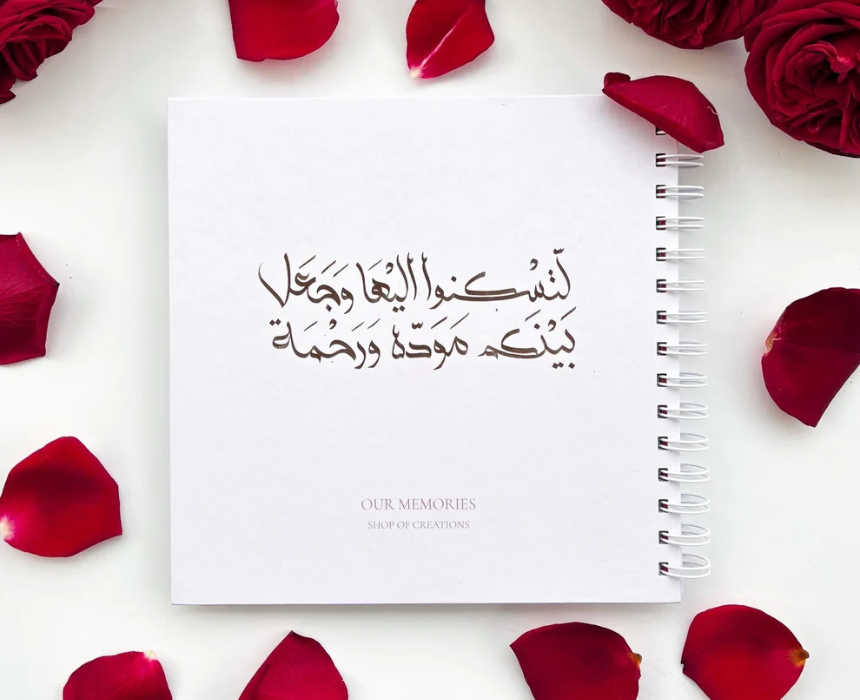 لّتسْكنوا اليْهَا وَجَعَل
بَيْنَكم مَوَدّة وَرَحْمَة
OUR MEMORIES
SHOP OF CREATIONS